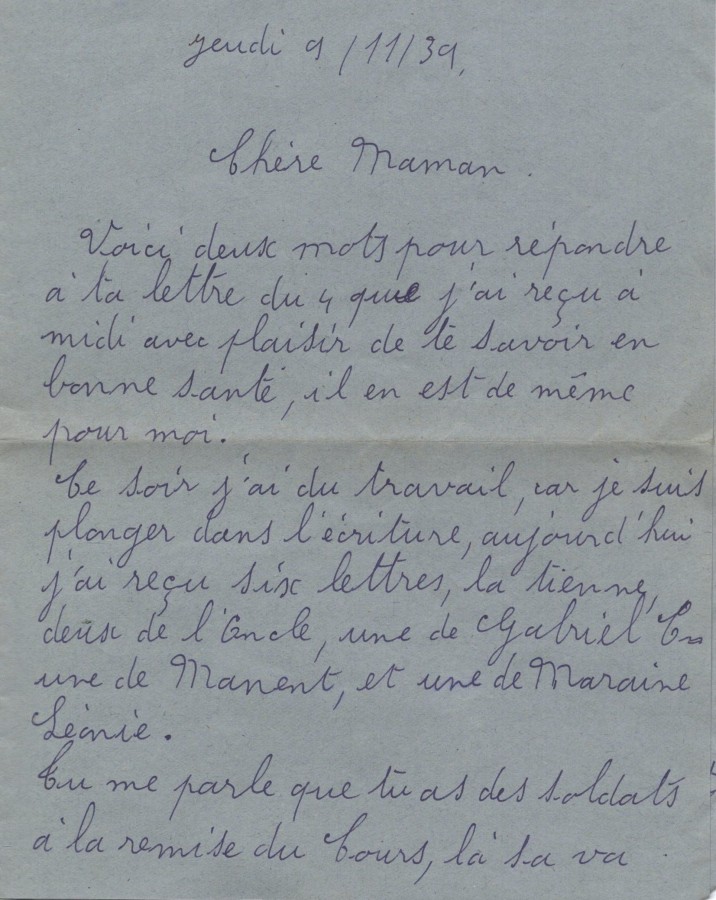 jeudi 9/11/39,
Chère Maman.
Voici deux mots pour répondre
à ta lettre du 4 que j'ai reçu à
midi avec plaisir de te savoir en
bonne santé, il en est de même
pour moi.
Ce soir j'ai du travail, car je suis
plonger dans l'écriture, aujourd'hui
j'ai reçu six lettres, la tienne,
deux de l'Oncle, une de Gabriel
une de Manent, et une de Maraine
Léonie.
Tu me parle que tu as des soldats
à la remise du Cours, là sa va